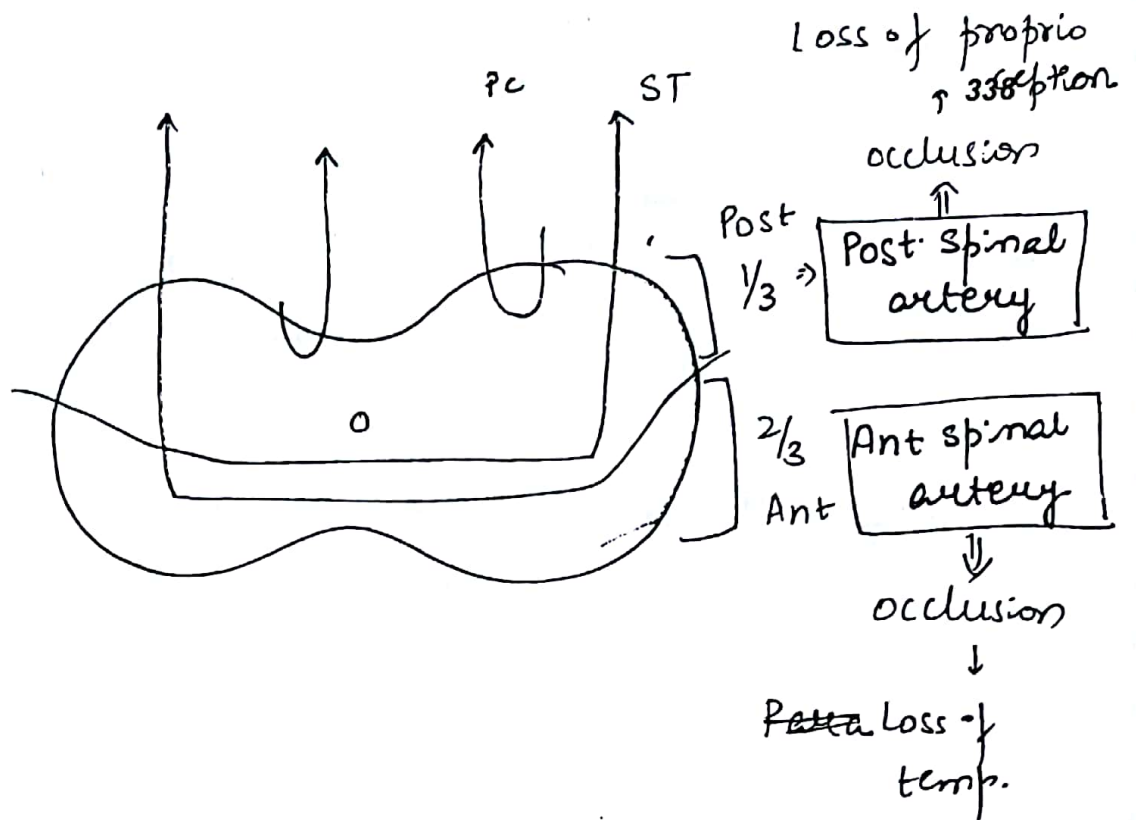 Loss of proprio
↑ 338eption
occlusion
⇑
PC ST
Post
1/3 ⇒
Post. spinal
artery
O
2/3
Ant
Ant spinal
artery
⇓
occlusion
↓
Loss of
temp.